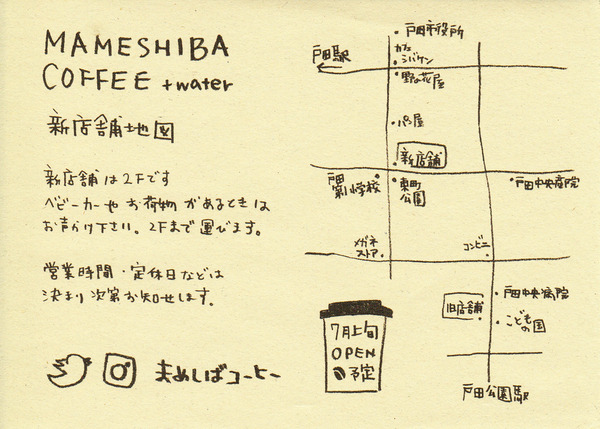 MAMESHIBA
COFFEE +water
新店舗地図
新店舗は2Fです
ベビーカーや お荷物 があるときは
お声かけ下さい。2Fまで 運びます。
営業時間・定休日などは
決まり次第お知せします。
まめしばコーヒー
戸田駅
戸田市役所
カフェ
シバケン
野の花屋
パン屋
新店舗
戸田
第1小学校
東町
公園
戸田中央病院
メガネ
ストア
コンビニ
旧店舗
戸田中央病院
こどもの国
7月上旬
OPEN
予定
戸田公園駅